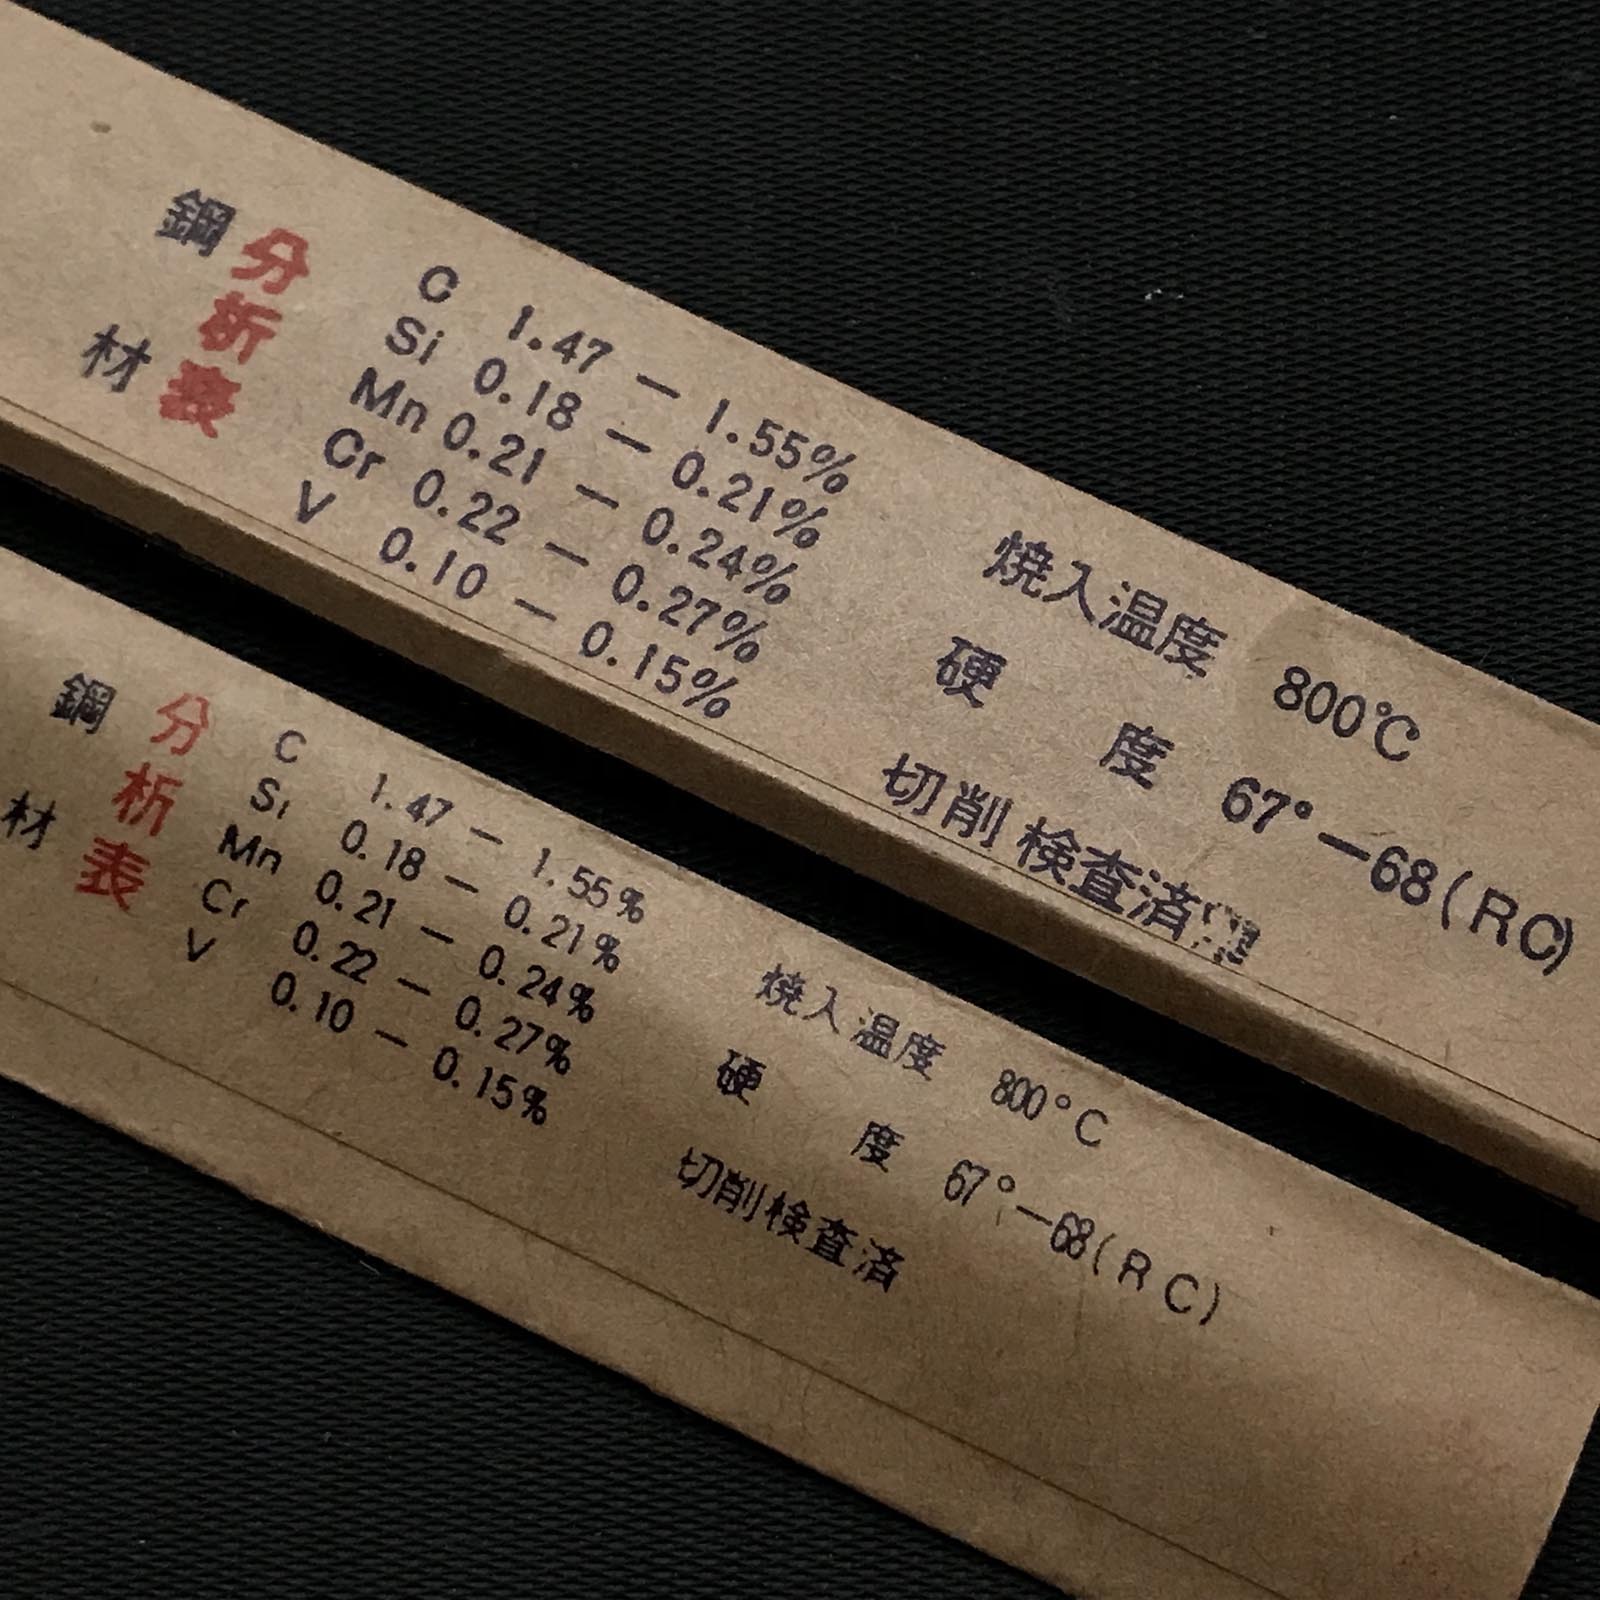 鋼材
分析表
C 1.47 － 1.55%
Si 0.18 － 0.21%
Mn 0.21 － 0.24%
Cr 0.22 － 0.27%
V 0.10 － 0.15%
焼入温度 800℃
硬度 67°－68(RC)
切削検査済
鋼材
分析表
C 1.47 － 1.55%
Si 0.18 － 0.21%
Mn 0.21 － 0.24%
Cr 0.22 － 0.27%
V 0.10 － 0.15%
焼入温度 800°C
硬度 67°－68(RC)
切削検査済